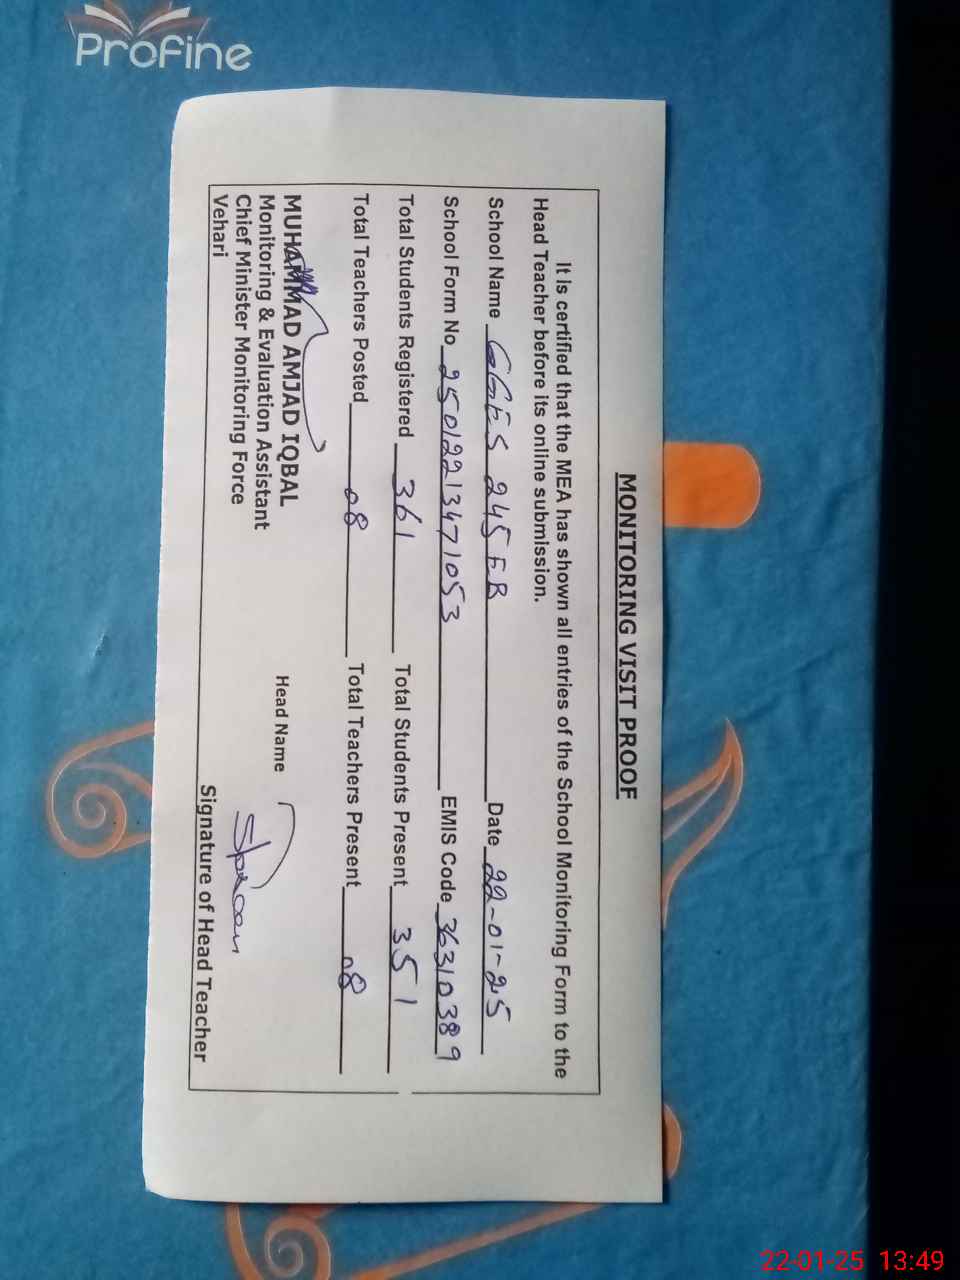 Profine
MONITORING VISIT PROOF
It is certified that the MEA has shown all entries of the School Monitoring Form to the
Head Teacher before its online submission.
School Name GGES 245 EB Date 22-01-25
School Form No 25012213471053 EMIS Code 36310389
Total Students Registered 361 Total Students Present 351
Total Teachers Posted 08 Total Teachers Present 08
MUHAMMAD AMJAD IQBAL
Monitoring & Evaluation Assistant
Chief Minister Monitoring Force
Vehari
Head Name
Signature of Head Teacher
22-01-25 13:49